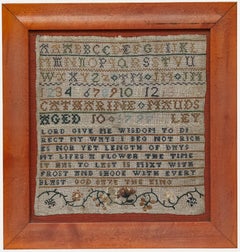 AABBCCDEFGHIJKL
MNOPQRSTU
WXYZ
1234 678910 12
CATHARINE HAUDS
AGED 10 LEY
LORD GIVE ME WISDOM TO DI
RECT MY WAYS I BEG NOT RICH
ES NOR YET LENGTH OF DAYS
MY LIFE'S A FLOWER THE TIME
IT HAS TO LEST IS MIXT WITH
FROST AND SHOOK WITH EVERY
BLAST GOD SAVE THE KING